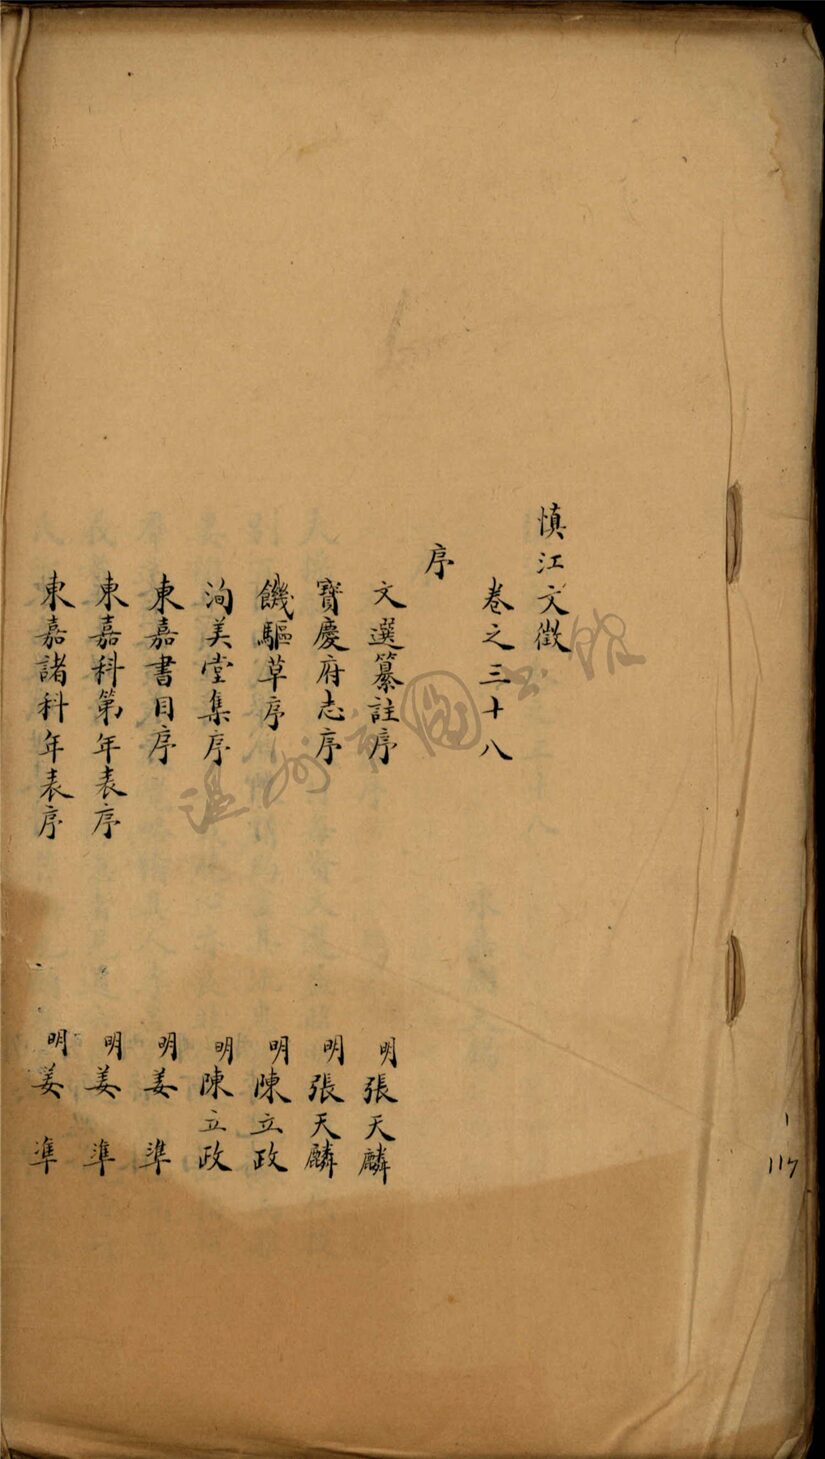 慎江文徵
卷之三十八
序
文選纂註序 明張天麟
寶慶府志序 明張天麟
饑驅草序 明陳立政
洵美堂集序 明陳立政
東嘉書目序 明姜準
東嘉科第年表序 明姜準
東嘉諸科年表序 明姜準
温州市圖書館
117